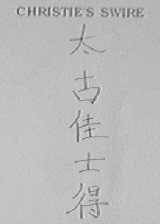 CHRISTIE'S SWIRE
太古佳士得